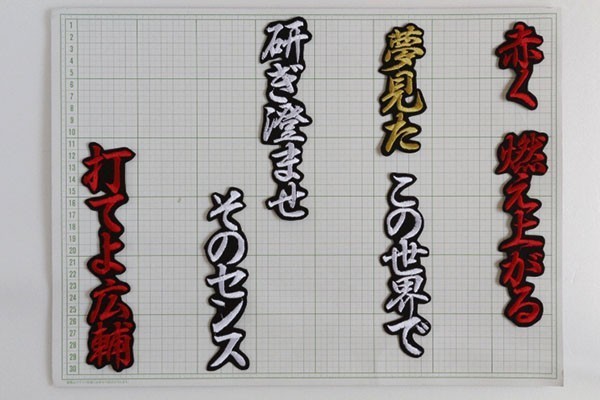 赤く
燃え上がる
夢見た
この世界で
研ぎ澄ませ
そのセンス
打てよ広輔
1
2
3
4
5
6
7
8
9
10
11
12
13
14
15
16
17
18
19
20
21
22
23
24
25
26
27
28
29
30